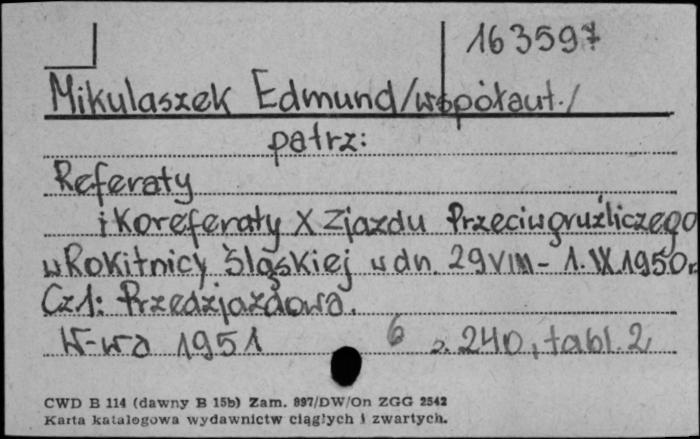 163597
Mikulaszek Edmund/współaut./
patrz:
Referaty
i Koreferaty X Zjazdu Przeciwgruźliczego
w Rokitnicy Śląskiej w dn. 29 VIII - 1. IX. 1950 r.
Cz 1: Przedzjazdowa.
W-wa 1951 6 s. 240, tabl. 2
CWD B 114 (dawny B 15b) Zam. 897/DW/On ZGG 2542
Karta katalogowa wydawnictw ciągłych i zwartych.